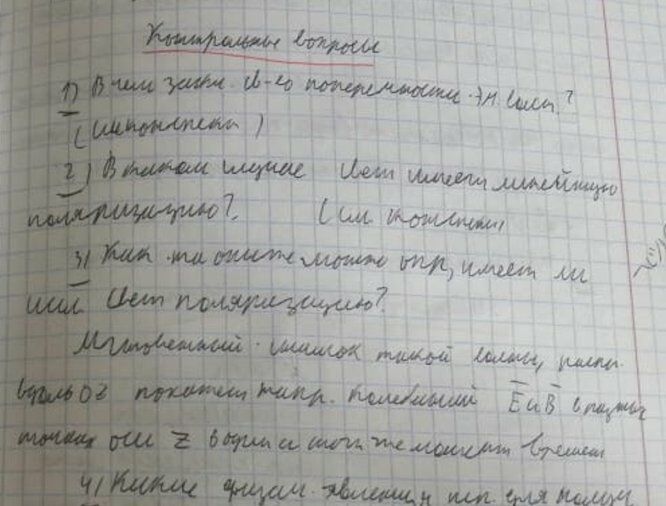 Контрольные вопросы
1) В чем закл. св-во поперечности эл. волн?
(см конспект)
2) В каком случае свет имеет линейную
поляризацию? (см конспект)
3) Как на опыте можно опр, имеет ли
свет поляризацию?
Мгновенный снимок такой волны, распр.
вдоль OZ показыв напр. колебаний E и B в разных
точках оси Z в один и тот же момент времени
4) Какие физич. явления исп. для